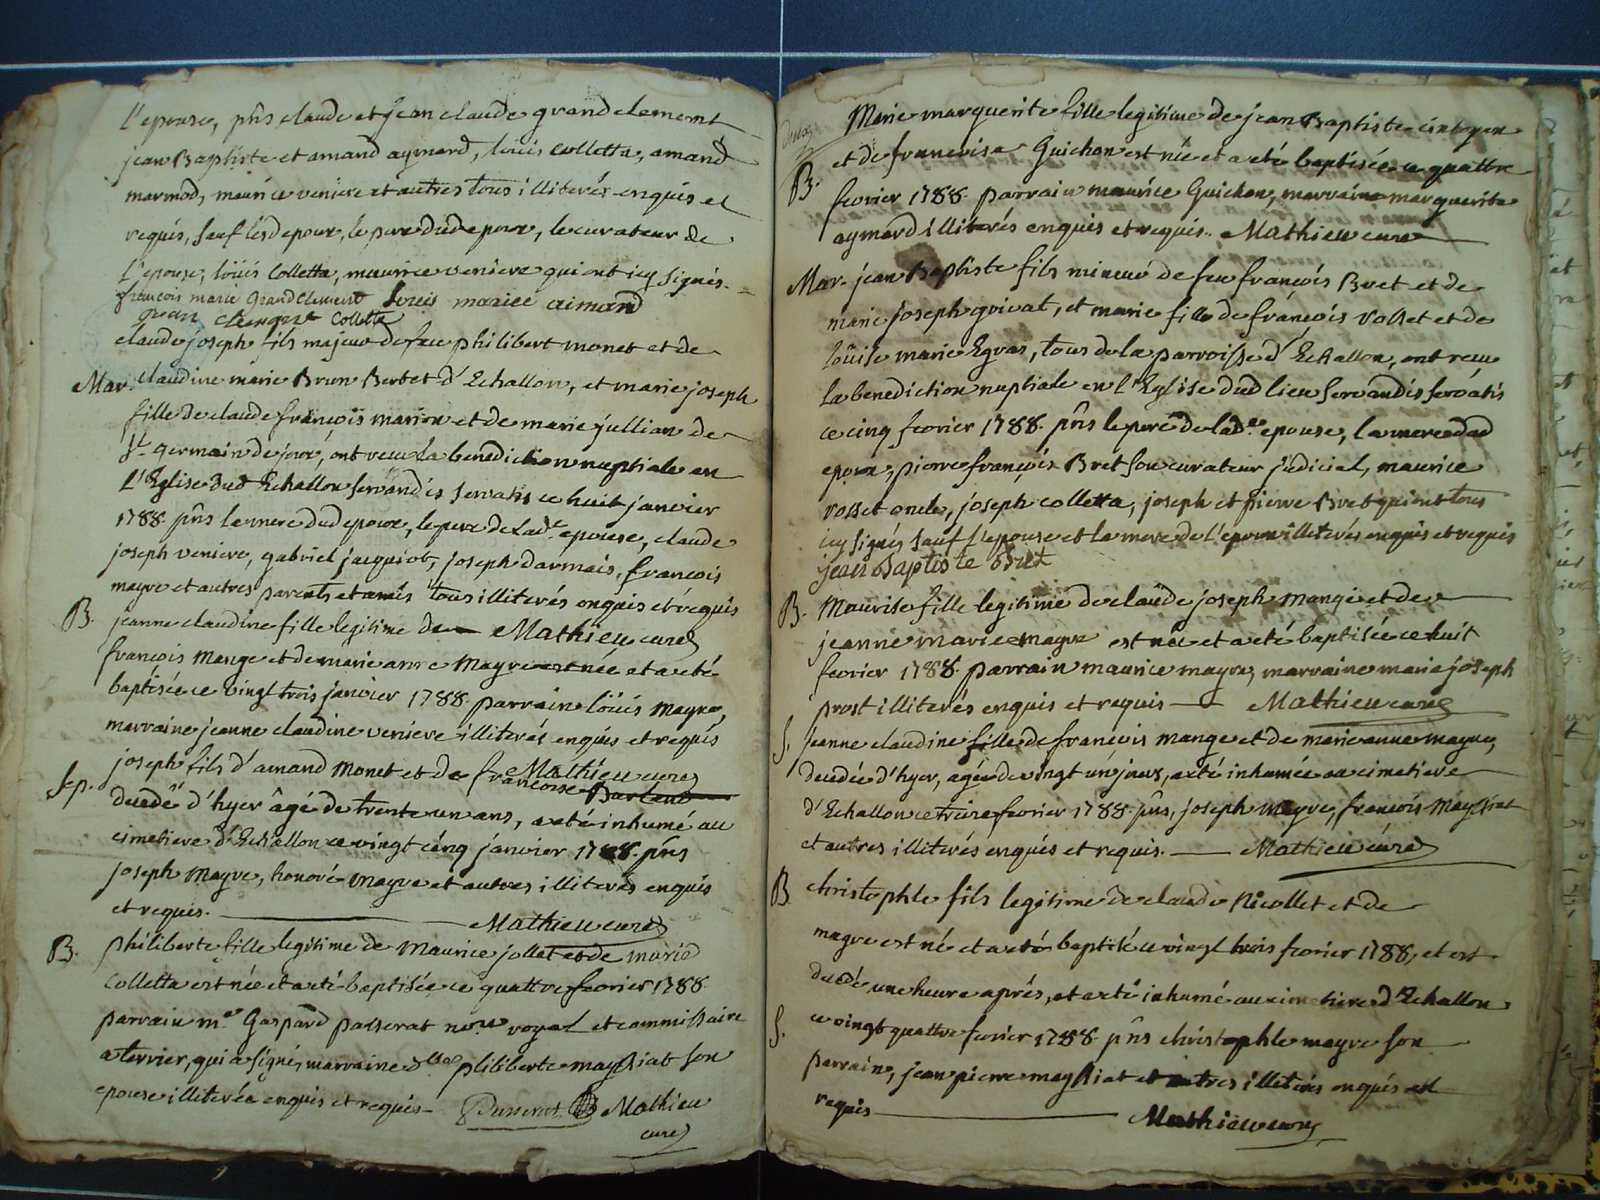 L'epouse, pñs claude et jean claude grandclement
jean Baptiste et amand aymard, loüis Colletta, amand
marmod, maurice veniere et autres tous illiterés enquis et
requis, sauf lesd epoux, le pere dud epoux, le curateur de
L'epouse, loüis Colletta, maurice veniere qui ont icy signés.
françois marie GrandClement Louis mariee aimand
Colletta
claude joseph fils majeur de feu philibert monet et de
Mar. claudine marie Brun Berbet d'Echallon, et marie joseph
fille de claude françois marion et de marie jullian de
St. germain de joux, ont recu la benediction nuptiale en
L'Eglise dud Echallon servandis servatis ce huit janvier
1788. pñs la mere dud epoux, le pere de lade. epouse, claude
joseph veniere, gabriel jacquiot, joseph darmais, françois
mayre et autres parents et amis tous illiterés enquis et requis
B. jeanne claudine fille legitime de Mathieu curé
françois Mange et de marie anne Mayre est née et a eté
baptisée ce vingt trois janvier 1788. parrain loüis mayre,
marraine jeanne claudine veniere illiterés enquis et requis
Mathieu curé
Sep. joseph fils d'amand Monet et de françoise Burlend
decedé d'hyer âgé de trente un ans, a eté inhumé au
cimetiere d'Echallon ce vingt cinq janvier 1788. pñs
joseph Mayre, honoré mayre et autres illiterés enquis
et requis. Mathieu curé
B. philiberte fille legitime de Maurice jollet et de marie
Colletta est née et a eté baptisée ce quattre fevrier 1788.
parrain me. Gaspard passerat nore royal et commissaire
a terrier, qui a signé, marraine dlle philiberte maysiat son
epouse illiterée enquis et requis Passerat Mathieu
curé
Marie marguerite fille legitime de jean Baptiste
B. et de francoise Guichon est née et a eté baptisée ce quattre
fevrier 1788. parrain maurice Guichon, marraine marguerite
aymard illiterés enquis et requis. Mathieu curé
Mar. jean Baptiste fils mineur de feu françois Bret et de
marie joseph grivat, et marie fille de françois Volset et de
loüise marie Egraz, tous de la parroisse d'Echallon, ont recu
la benediction nuptiale en l'Eglise dud lieu servandis servatis
ce cinq fevrier 1788. pñs le pere de lade. epouse, la mere dud
epoux, pierre françois Bret son curateur judicial, maurice
volset oncle, joseph colletta, joseph et pierre Bret qui ont tous
icy signés sauf l'epouse et la mere de l'epoux illiterés enquis et requis
jean Baptiste Bret
B. Maurise fille legitime de claude joseph mange et de
jeanne marie mayre est née et a eté baptisée ce huit
fevrier 1788. parrain maurice mayre, marraine marie joseph
prost illiterés enquis et requis Mathieu curé
S. jeanne claudine fille de françois mange et de marie anne mayre,
decedée d'hyer, agée de vingt un jours, a eté inhumée au cimetiere
d'Echallon ce treize fevrier 1788. pñs, joseph mayre, françois Maysiat
et autres illiterés enquis et requis. Mathieu curé
B christophle fils legitime de claude Nicollet et de
mayre est né et a eté baptisé ce vingt trois fevrier 1788, et est
decedé une heure aprés, et a eté inhumé au cimetiere d'Echallon
S. ce vingt quattre fevrier 1788. pñs christophle mayre son
parrain, jean pierre maysiat et autres illiterés enquis et
requis Mathieu curé